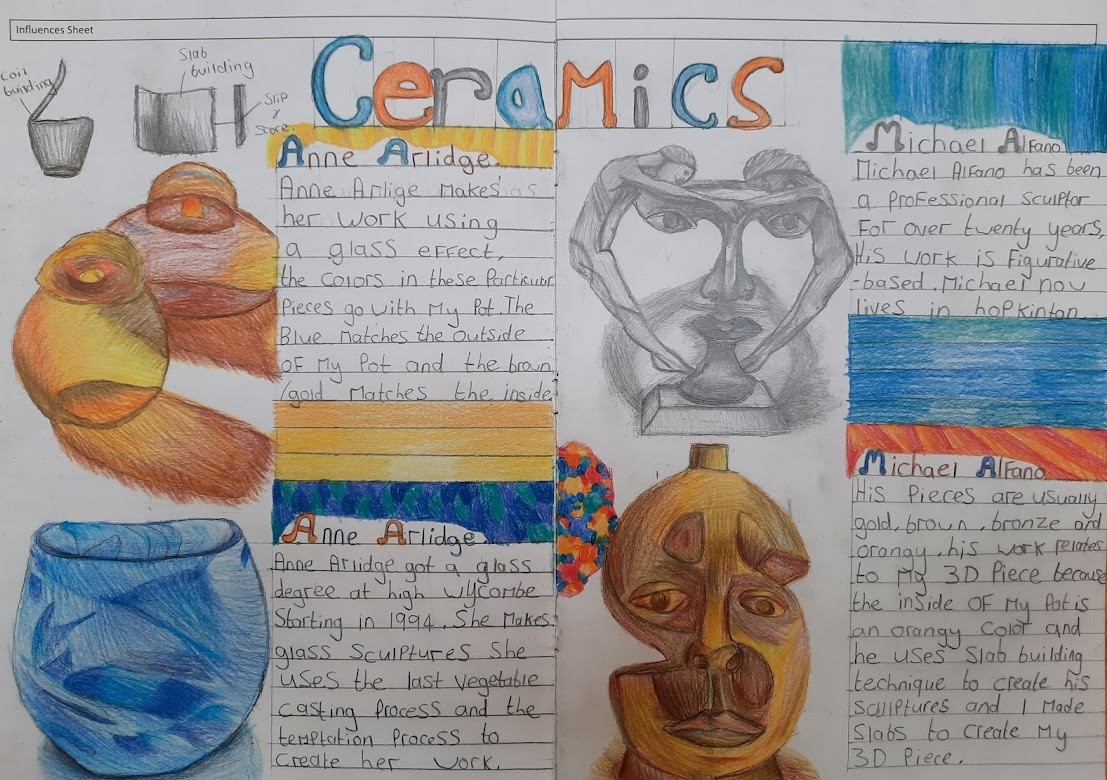 Influences Sheet
Ceramics
Coil
building
Slab
building
Slip
&
score.
Anne Arlidge.
Anne Arlige Makes as
her work using
a glass effect,
the Colors in these Particular
Pieces go with My Pot. The
Blue Matches the outside
OF My Pot and the brown
/gold Matches the inside
Anne Arlidge.
Anne Arlidge got a glass
degree at high wycombe
Starting in 1994. She Makes
glass Sculptures She
uses the last vegetable
casting Process and the
temptation Process to
Create her work.
Michael Alfano
Michael Alfano has been
a Professional Sculptor
For over twenty years,
His work is Figurative
-based. Michael now
lives in hopkinton.
Michael Alfano
His Pieces are usually
gold, brown, bronze and
orangy. his work relates
to My 3D Piece because
the inside OF My Pot is
an orangy Color and
he uses Slab building
technique to create his
Sculptures and I Made
Slabs to create My
3D Piece.